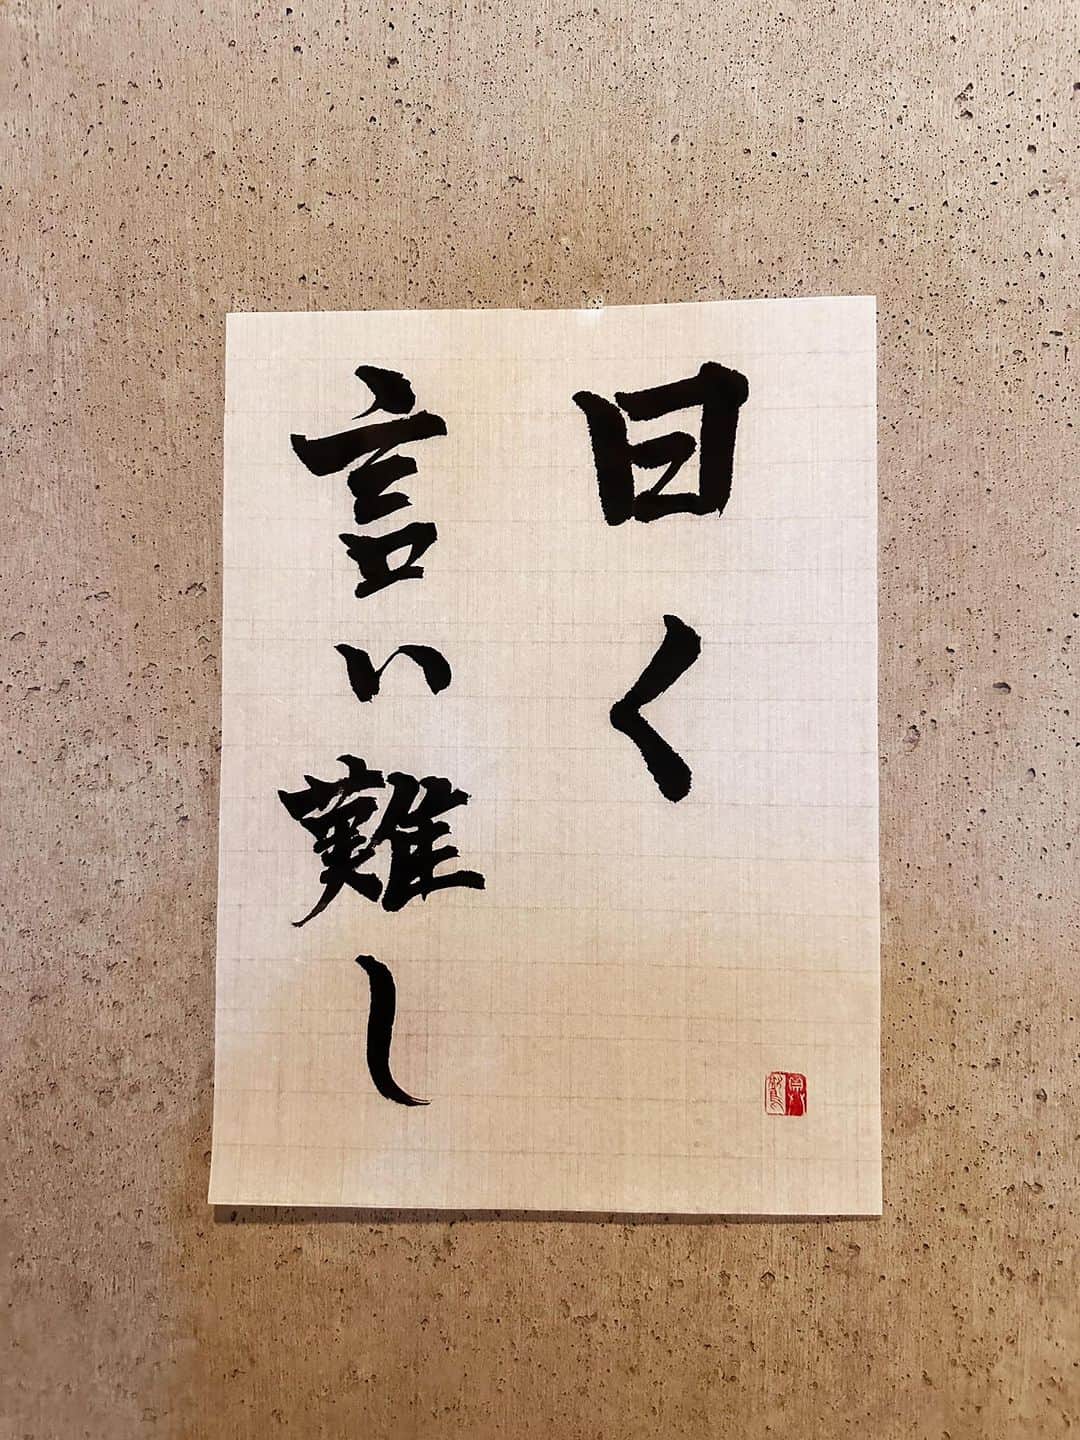 曰く
言い難し